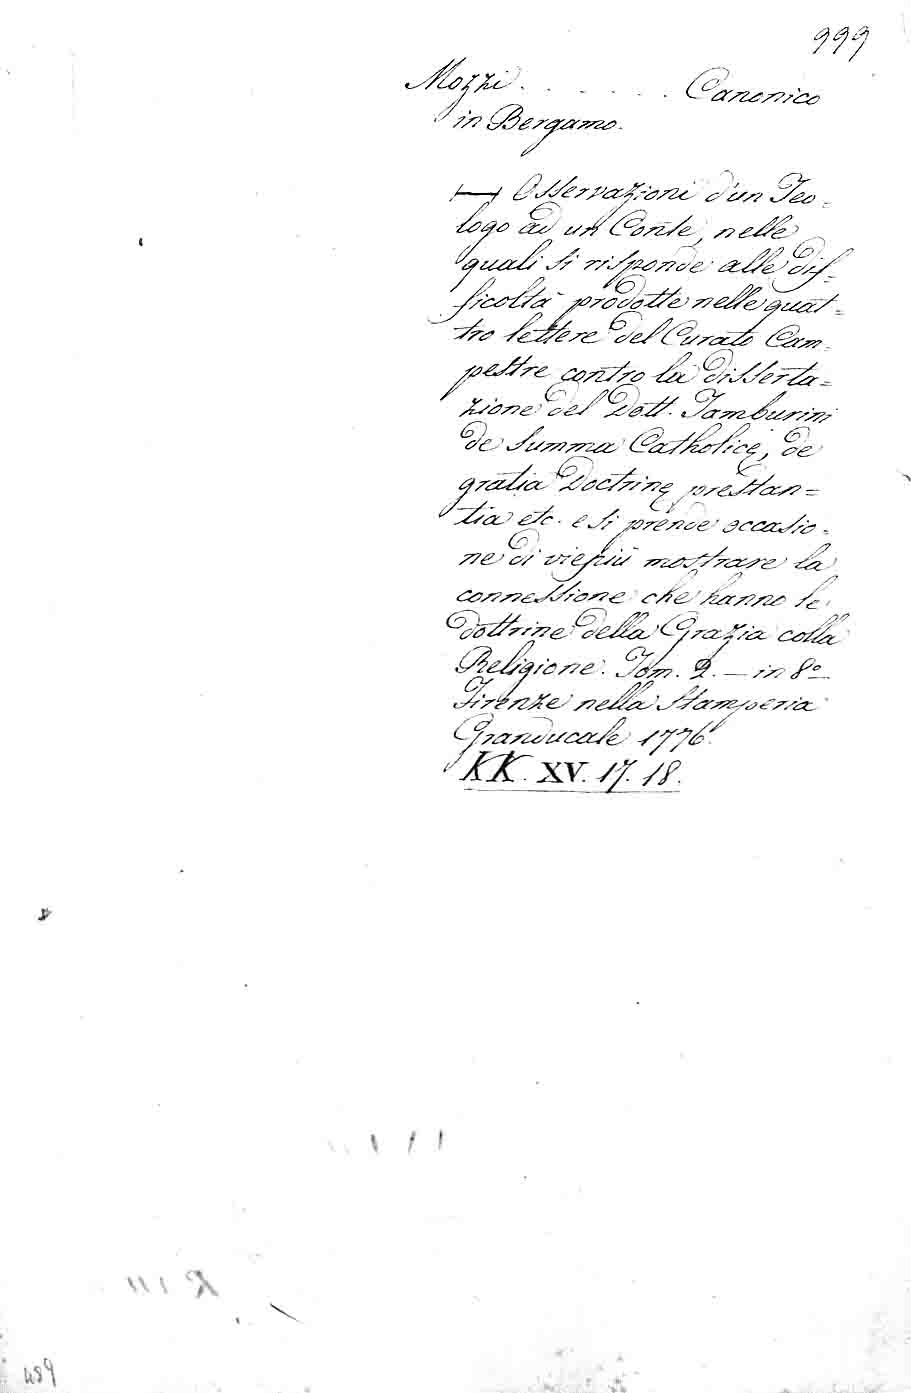 999
Mozzi . . . . . . . Canonico
in Bergamo.
Osservazioni d'un Teo=
logo ad un Conte, nelle
quali si risponde alle dif=
ficoltà prodotte nelle quat=
tro lettere del Curato Cam=
pestre contro la disserta=
zione del Dott. Tamburini
de Summa Catholicę, de
gratia Doctrinę prestan=
tia etc. e si prende occasio=
ne di viepiù mostrare la
connessione che hanno le
dottrine della Grazia colla
Religione. Tom. 2. — in 8º
Firenze nella Stamperia
Granducale 1776.
KK. XV. 17. 18.
489